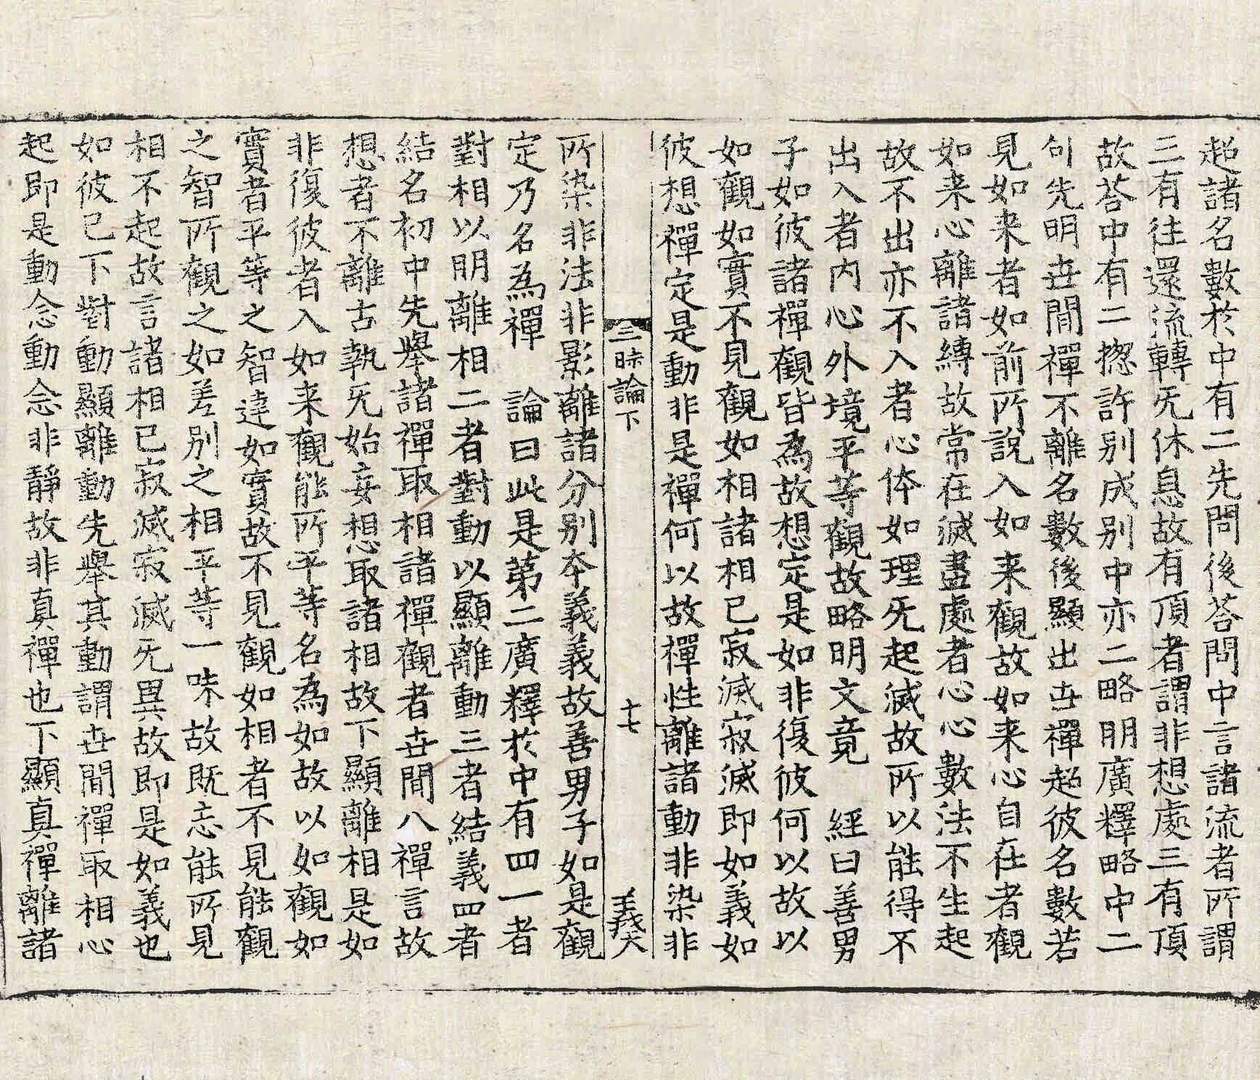 超諸名數於中有二先問後荅問中言諸流者所謂
三有往還流轉旡休息故有頂者謂非想處三有頂
故荅中有二揔許别成别中亦二略明廣釋略中二
句先明世間禪不離名數後顯出世禪超彼名數若
見如来者如前所說入如来觀故如来心自在者觀
如来心離諸縛故常在滅盡處者心心數法不生起
故不出亦不入者心体如理旡起滅故所以能得不
出入者内心外境平等觀故略明文竟　經曰善男
子如彼諸禪觀皆為故想定是如非復彼何以故以
如觀如實不見觀如相諸相已寂滅寂滅即如義如
彼想禪定是動非是禪何以故禪性離諸動非染非
三昧論下　十七　義天
所染非法非影離諸分别夲義義故善男子如是觀
定乃名為禪　論曰此是第二廣釋於中有四一者
對相以明離相二者對動以顯離動三者結義四者
結名初中先舉諸禪取相諸禪觀者世間八禪言故
想者不離古執旡始妄想取諸相故下顯離相是如
非復彼者入如来觀能所平等名為如故以如觀如
實者平等之智達如實故不見觀如相者不見能觀
之智所觀之如差别之相平等一味故既忘能所見
相不起故言諸相已寂滅寂滅旡異故即是如義也
如彼已下對動顯離動先舉其動謂世間禪取相心
起即是動念動念非靜故非真禪也下顯真禪離諸